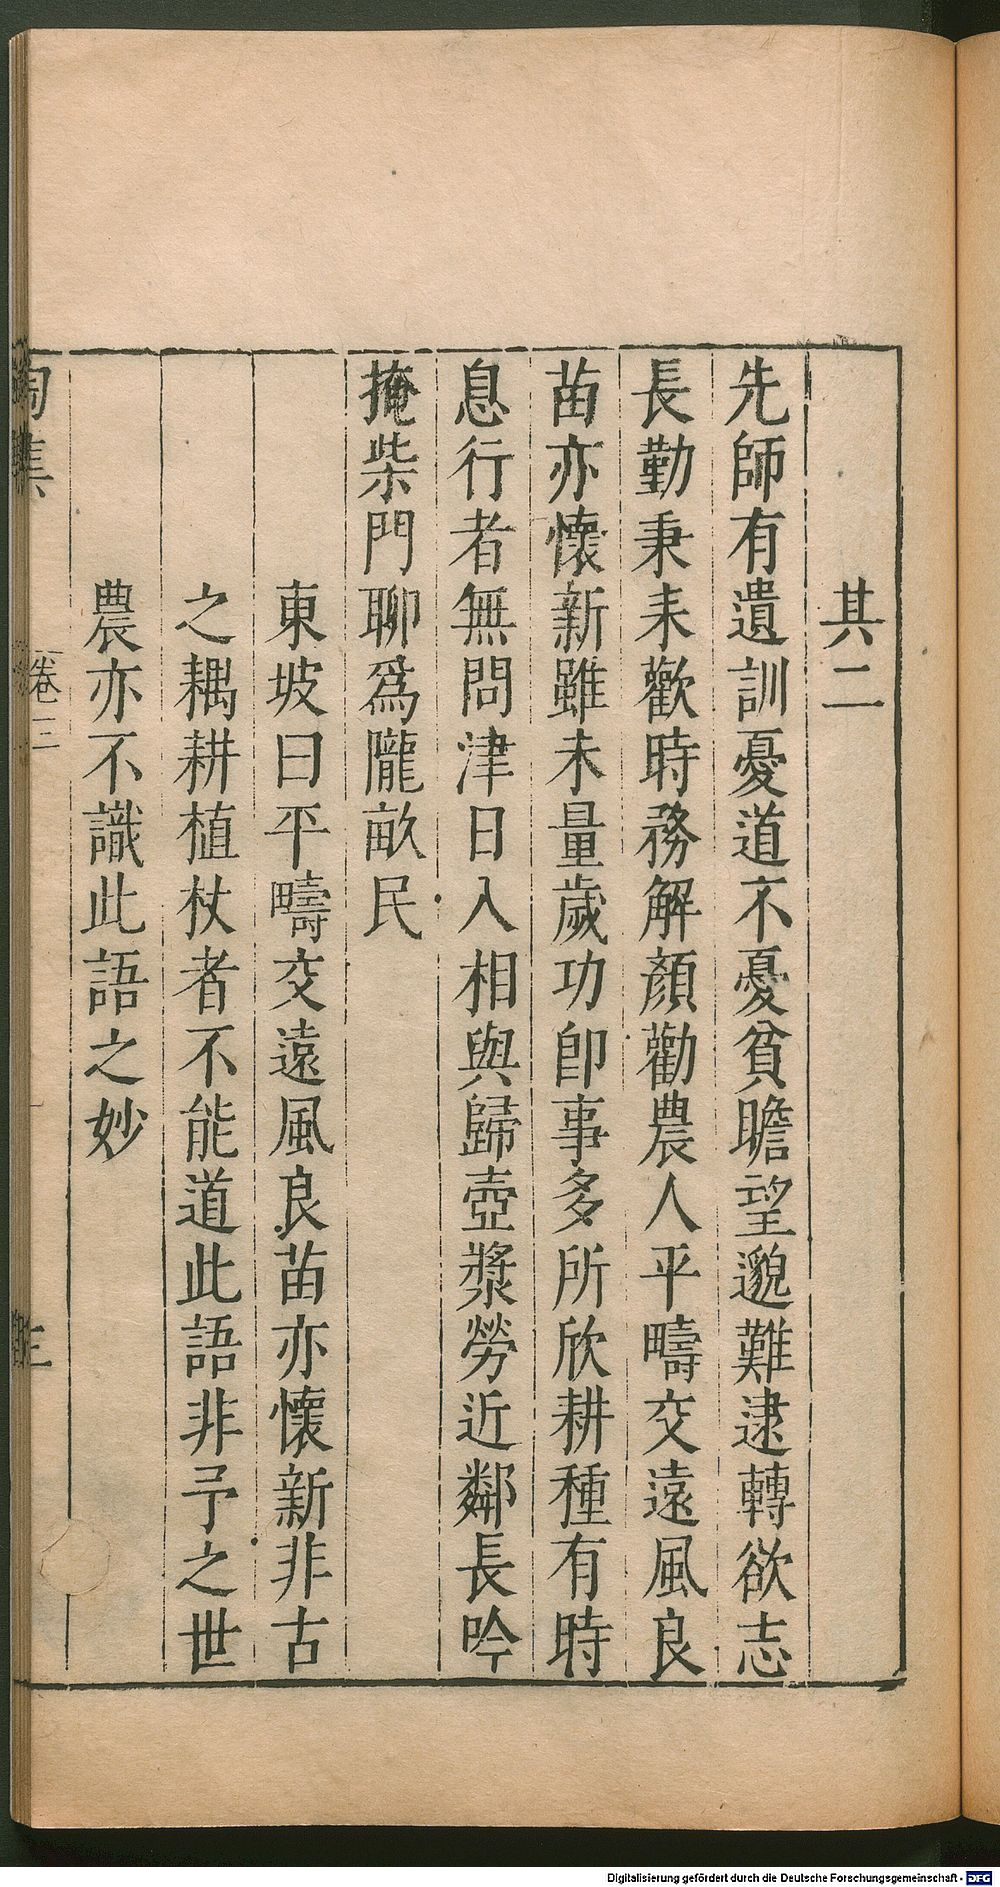 其二
先師有遺訓憂道不憂貧瞻望邈難逮轉欲志
長勤秉耒歡時務解顏勸農人平疇交遠風良
苗亦懷新雖未量歲功卽事多所欣耕種有時
息行者無問津日入相與歸壺漿勞近鄰長吟
掩柴門聊爲隴畝民
東坡曰平疇交遠風良苗亦懷新非古
之耦耕植杖者不能道此語非予之世
農亦不識此語之妙
陶集
卷三
Digitalisierung gefördert durch die Deutsche Forschungsgemeinschaft - DFG